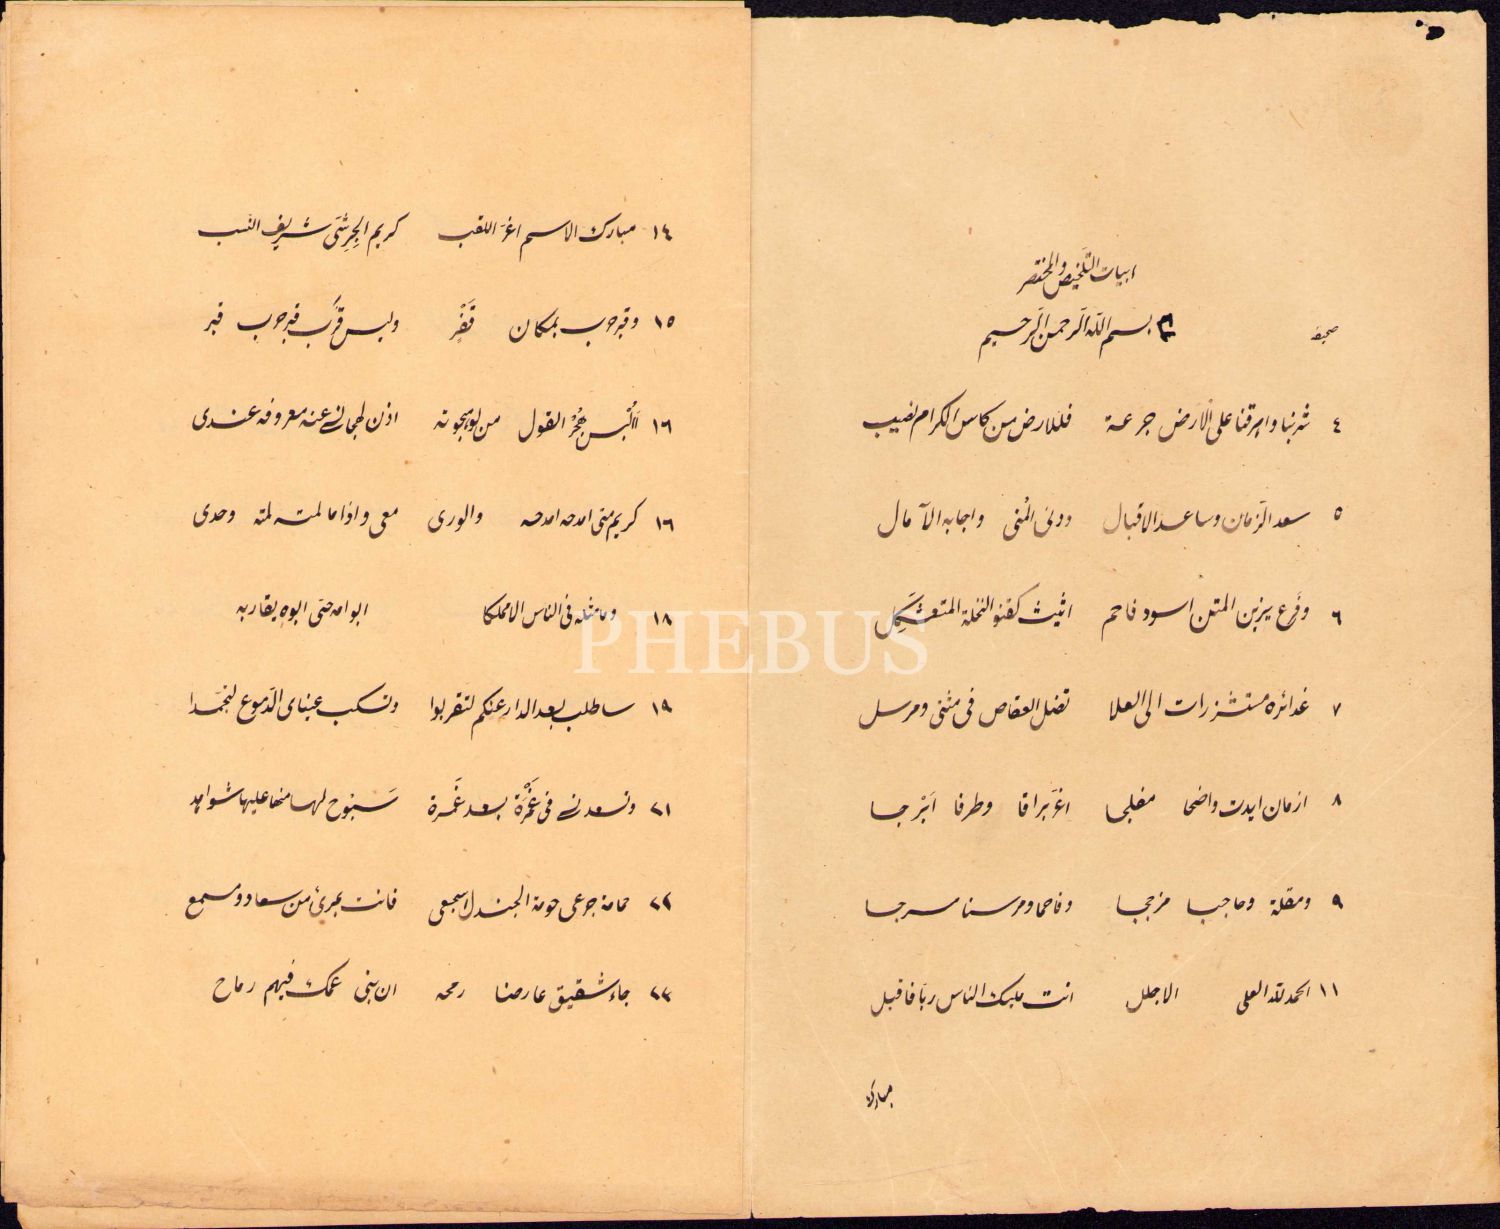 ابيات التلخيص والمختصر
صحيفه بسم الله الرحمن الرحيم
٤ شربنا واهرقنا على الارض جرعة فللارض من كاس الكرام نصيب
٥ سعد الزمان وساعد الاقبال ودنى المنى واجابه الآمال
٦ وفرع يزين المتن اسود فاحم اثيث كقنو النخلة المتعثكل
٧ غدائره مستشزرات الى العلا تضل العقاص فى مثنى ومرسل
٨ ازمان ابدت واضحا مفلجا اغر براقا وطرفا ابرجا
٩ ومقلة وحاجبا مزججا وفاحما ومرسنا مسرجا
١١ الحمد لله العلى الاجلل انت مليك الناس ربا فاقبل
مبارك
١٤ مبارك الاسم اغر اللقب كريم الجرشى شريف النسب
١٥ وقبر حرب بمكان قفر وليس قرب قبر حرب قبر
١٦ األبس هجر القول من لو هجوته اذن لهجانى عنه معروفه عندى
١٦ كريم متى امدحه امدحه والورى معى واذا ما لمته لمته وحدى
١٨ وما مثله فى الناس الا مملكا ابو امه حى ابوه يقاربه
١٩ ساطلب بعد الدار عنكم لتقربوا وتسكب عيناى الدموع لتجمدا
٢١ وتسعدنى فى غمرة بعد غمرة سبوح لها منها عليها شواهد
٢٢ حمامة جرعى حومة الجندل اسجعى فانت بمرئ من سعاد ومسمع
٢٣ جاء شقيق عارضا رمحه ان بنى عمك فيهم رماح
PHEBUS